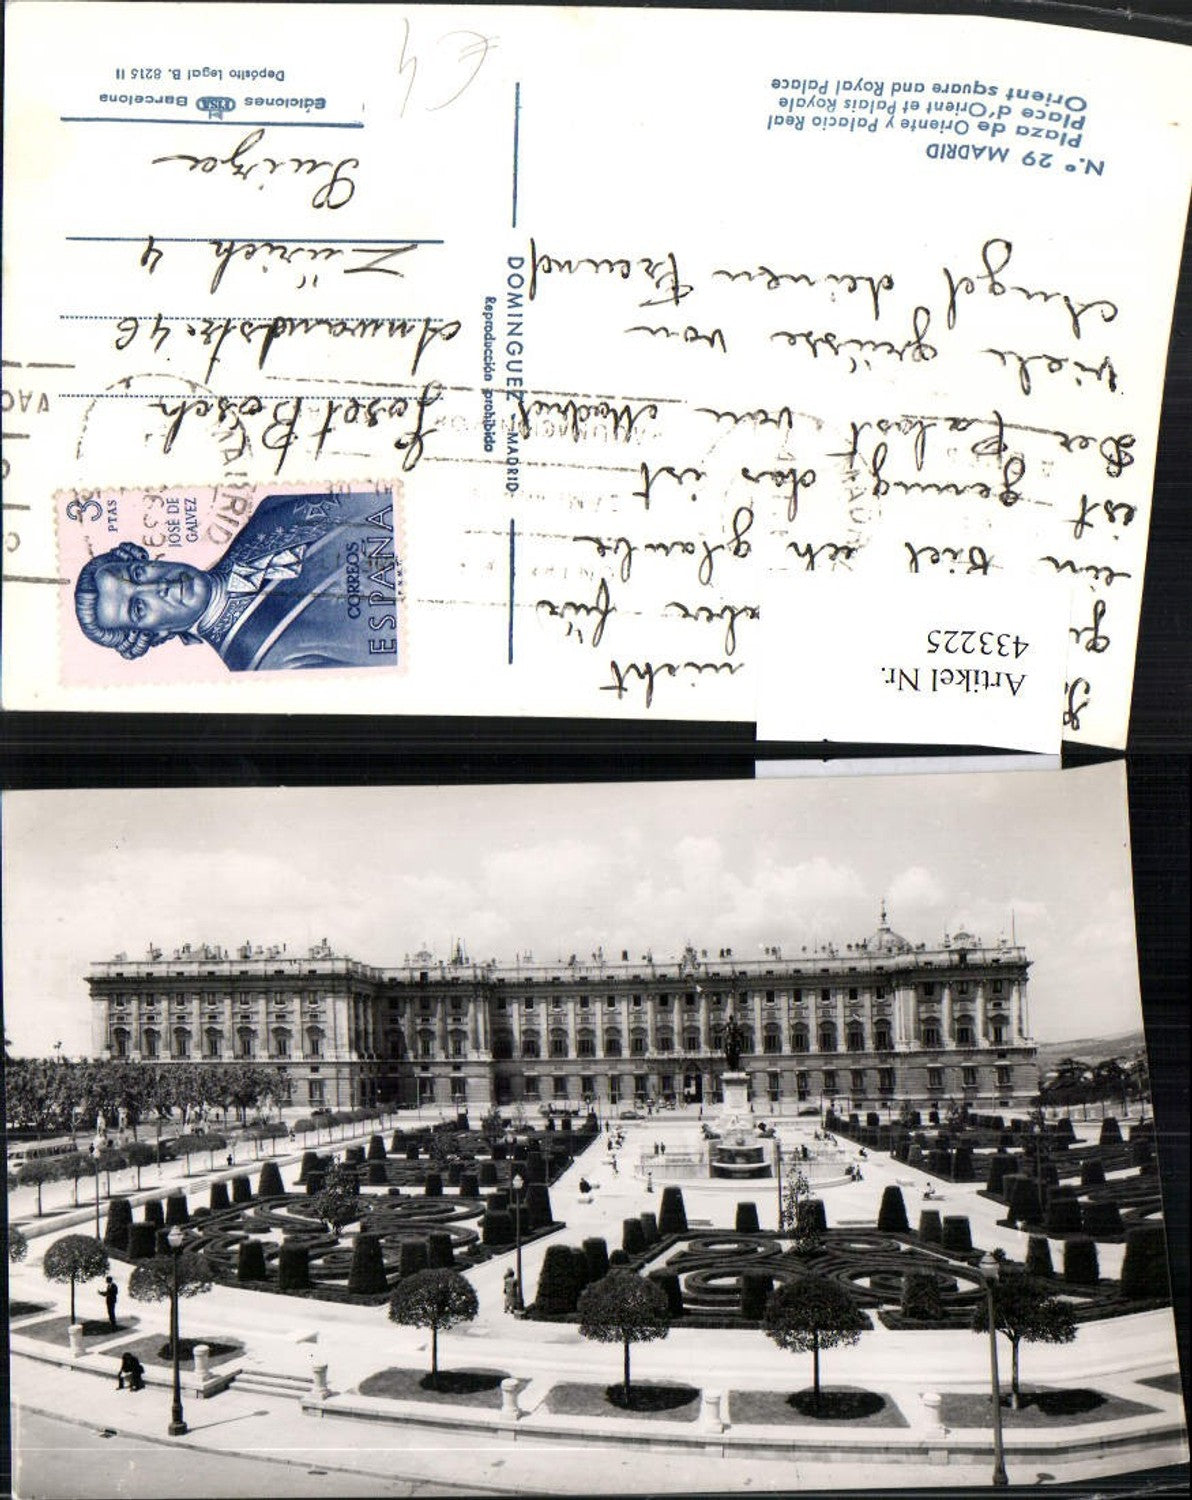 N.º 29 MADRID
Plaza de Oriente y Palacio Real
Place d'Orient et Palais Royale
Orient square and Royal Palace
Ediciones FISA Barcelona
Depósito Legal B. 8215 II
DOMINGUEZ - MADRID
Reproducción prohibida
nicht
aber für
ein viel ich glaube
ist genug das ist
Der Palast von Madrid
viele grüsse von
Angel deinen Freund
Josef Bösch
Anwandstr. 46
Zürich 4
Suiza
€ 4
3 PTAS
JOSÉ DE GALVEZ
CORREOS
ESPAÑA
MADRID
Artikel Nr.
433225